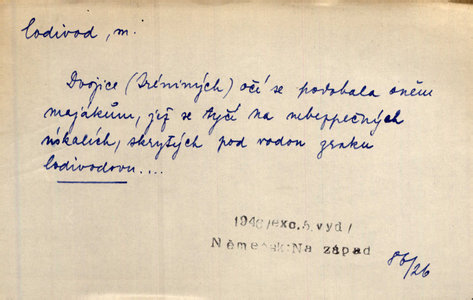 lodivod, m.
Dvojice (tréniných) očí se podobala oněm
majákům, jež se tyčí na nebezpečných
úskalích, skrytých pod vodou zraku
lodivodovu....
1946/exc.5.vyd/
Němeček:Na západ
86/26